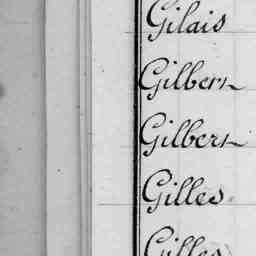 Gilais
Gilbert
Gilbert
Gilles
Gilles